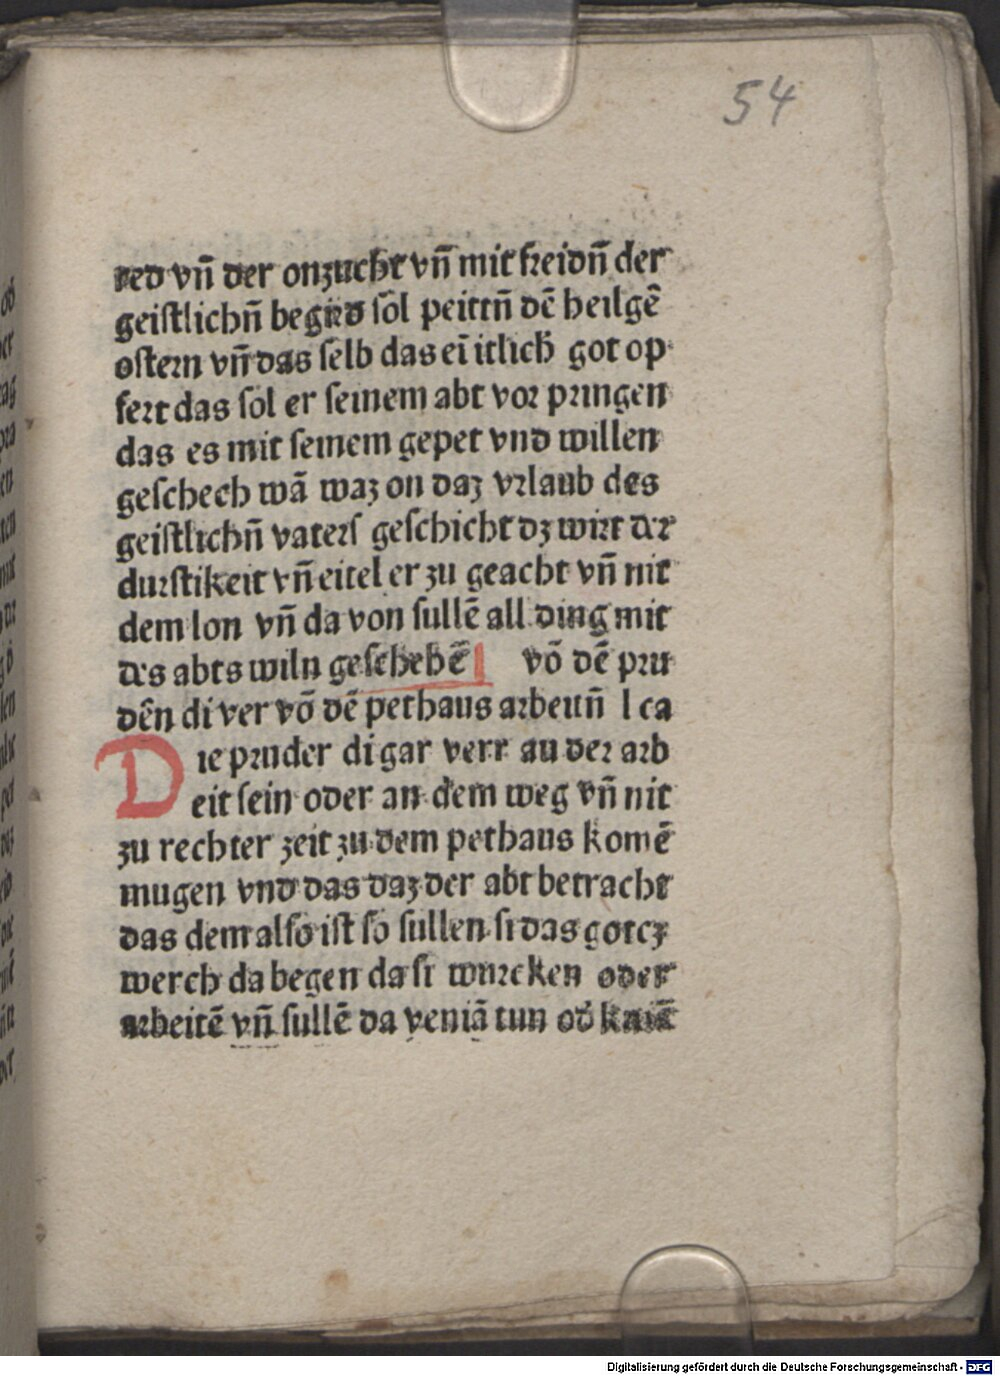 54
red vn̄ der onzucht vn̄ mit freidn̄ der
geistlichn̄ begird sol peittn̄ dē heilgē
ostern vn̄ das selb das eī itlicħ got op
fert das sol er seinem abt vor pringen
das es mit seinem gepet vnd willen
geschech wā waz on daz vrlaub des
geistlichn̄ vaters geschicht dz wirt der
durstikeit vn̄ eitel er zu geacht vn̄ nit
dem lon vn̄ da von sullē all ding mit
des abts wiln geschehē vō dē pru
dēn di ver vō dē pethaus arbeittn̄ l ca
Die pruder di gar verr an der arb
eit sein oder an dem weg vn̄ nit
zu rechter zeit zu dem pethaus komē
mugen vnd das daz der abt betracht
das dem also ist so sullen si das gotcz
werch da begen da si wurcken oder
arbeitē vn̄ sullē da veniā tun od̄ kniē
Digitalisierung gefördert durch die Deutsche Forschungsgemeinschaft - DFG